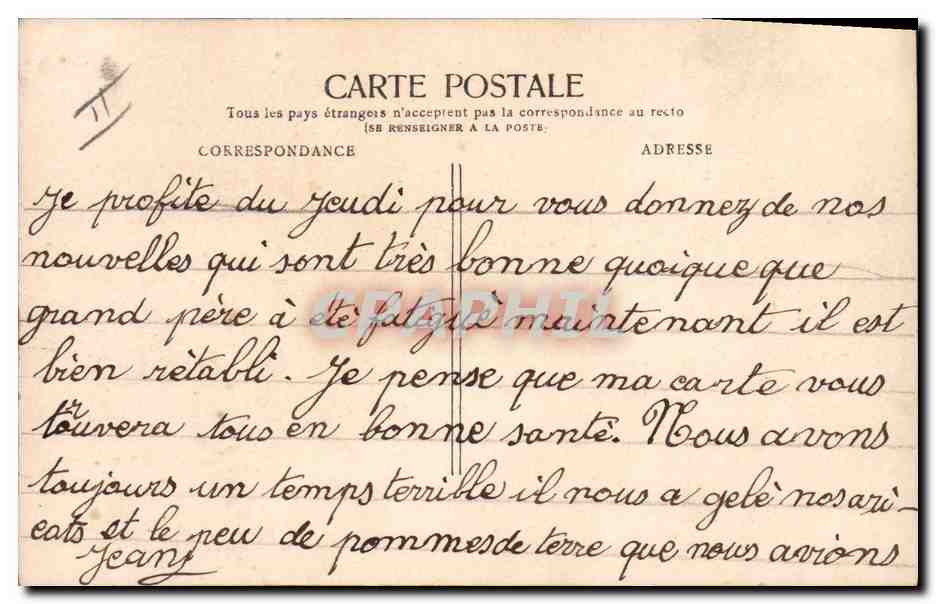 CARTE POSTALE
Tous les pays étrangers n'acceptent pas la correspondance au recto
(SE RENSEIGNER A LA POSTE)
CORRESPONDANCE
ADRESSE
Je profite du Jeudi pour vous donnez de nos
nouvelles qui sont très bonne quoique que
grand père à étè fatiguè maintenant il est
bien rètabli. Je pense que ma carte vous
trouvera tous en bonne santè. Nous avons
toujours un temps terrible il nous a gelè nos ari-
cots et le peu de pommes de terre que nous avions
Jean
GRAPHIL